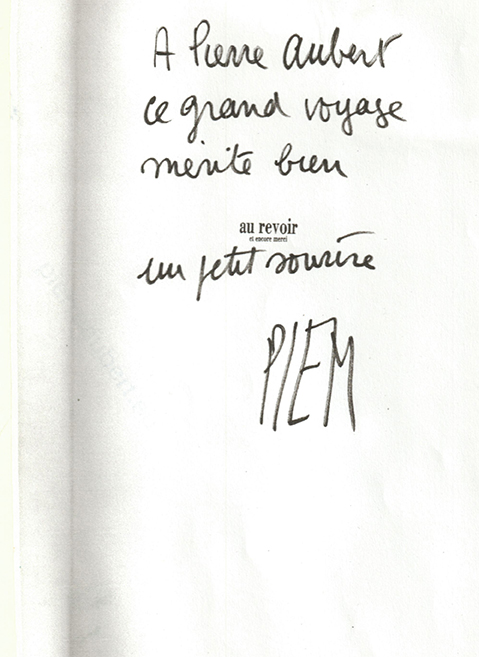 A Pierre Aubert
ce grand voyage
mérite bien
au revoir
et encore merci
un petit sourire
PIEM